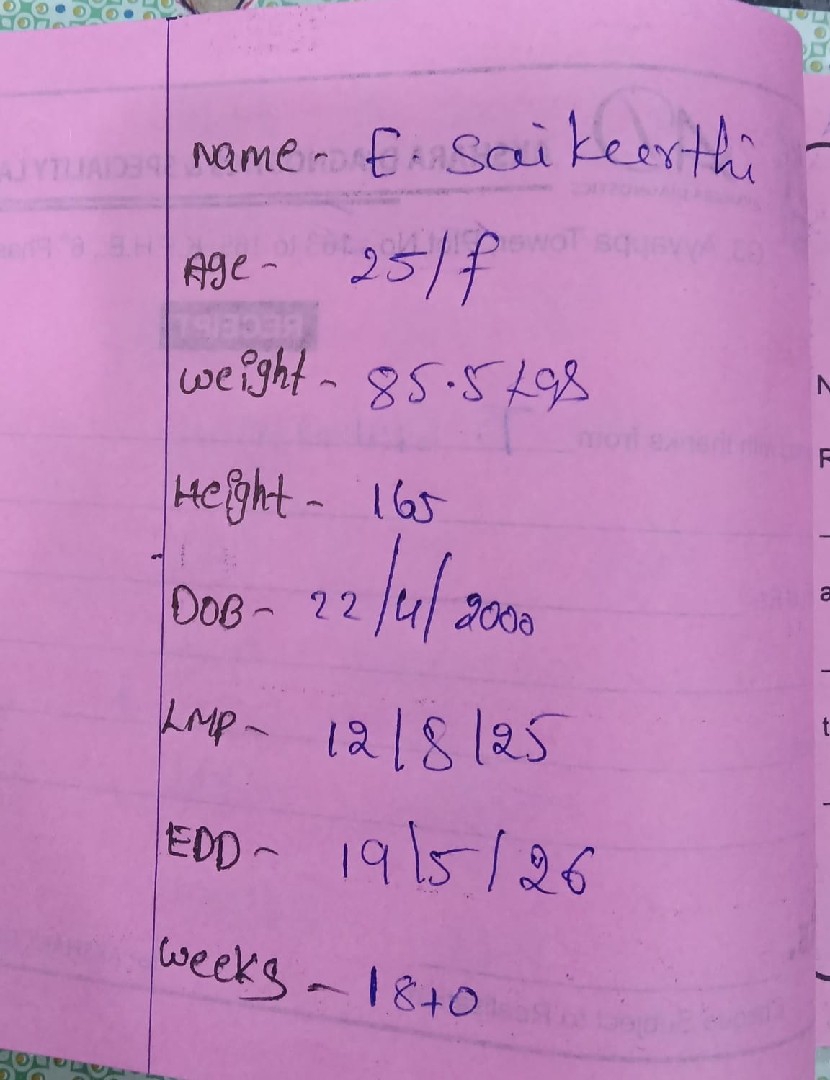 Name - E. Sai keerthi
Age - 25/f
weight - 85.5 kgs
Height - 165
DOB - 22/4/2000
LMP - 12/8/25
EDD - 19/5/26
weeks - 18+0
RECEIPT